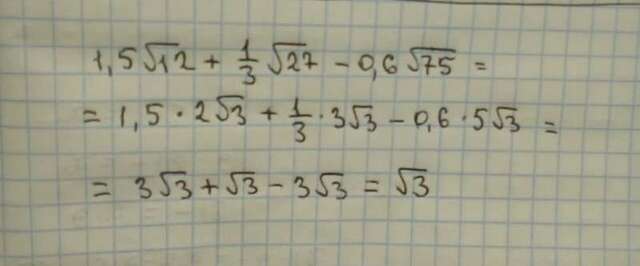 1,5√12 + 1/3 √27 - 0,6√75 =
= 1,5 · 2√3 + 1/3 · 3√3 - 0,6 · 5√3 =
= 3√3 + √3 - 3√3 = √3